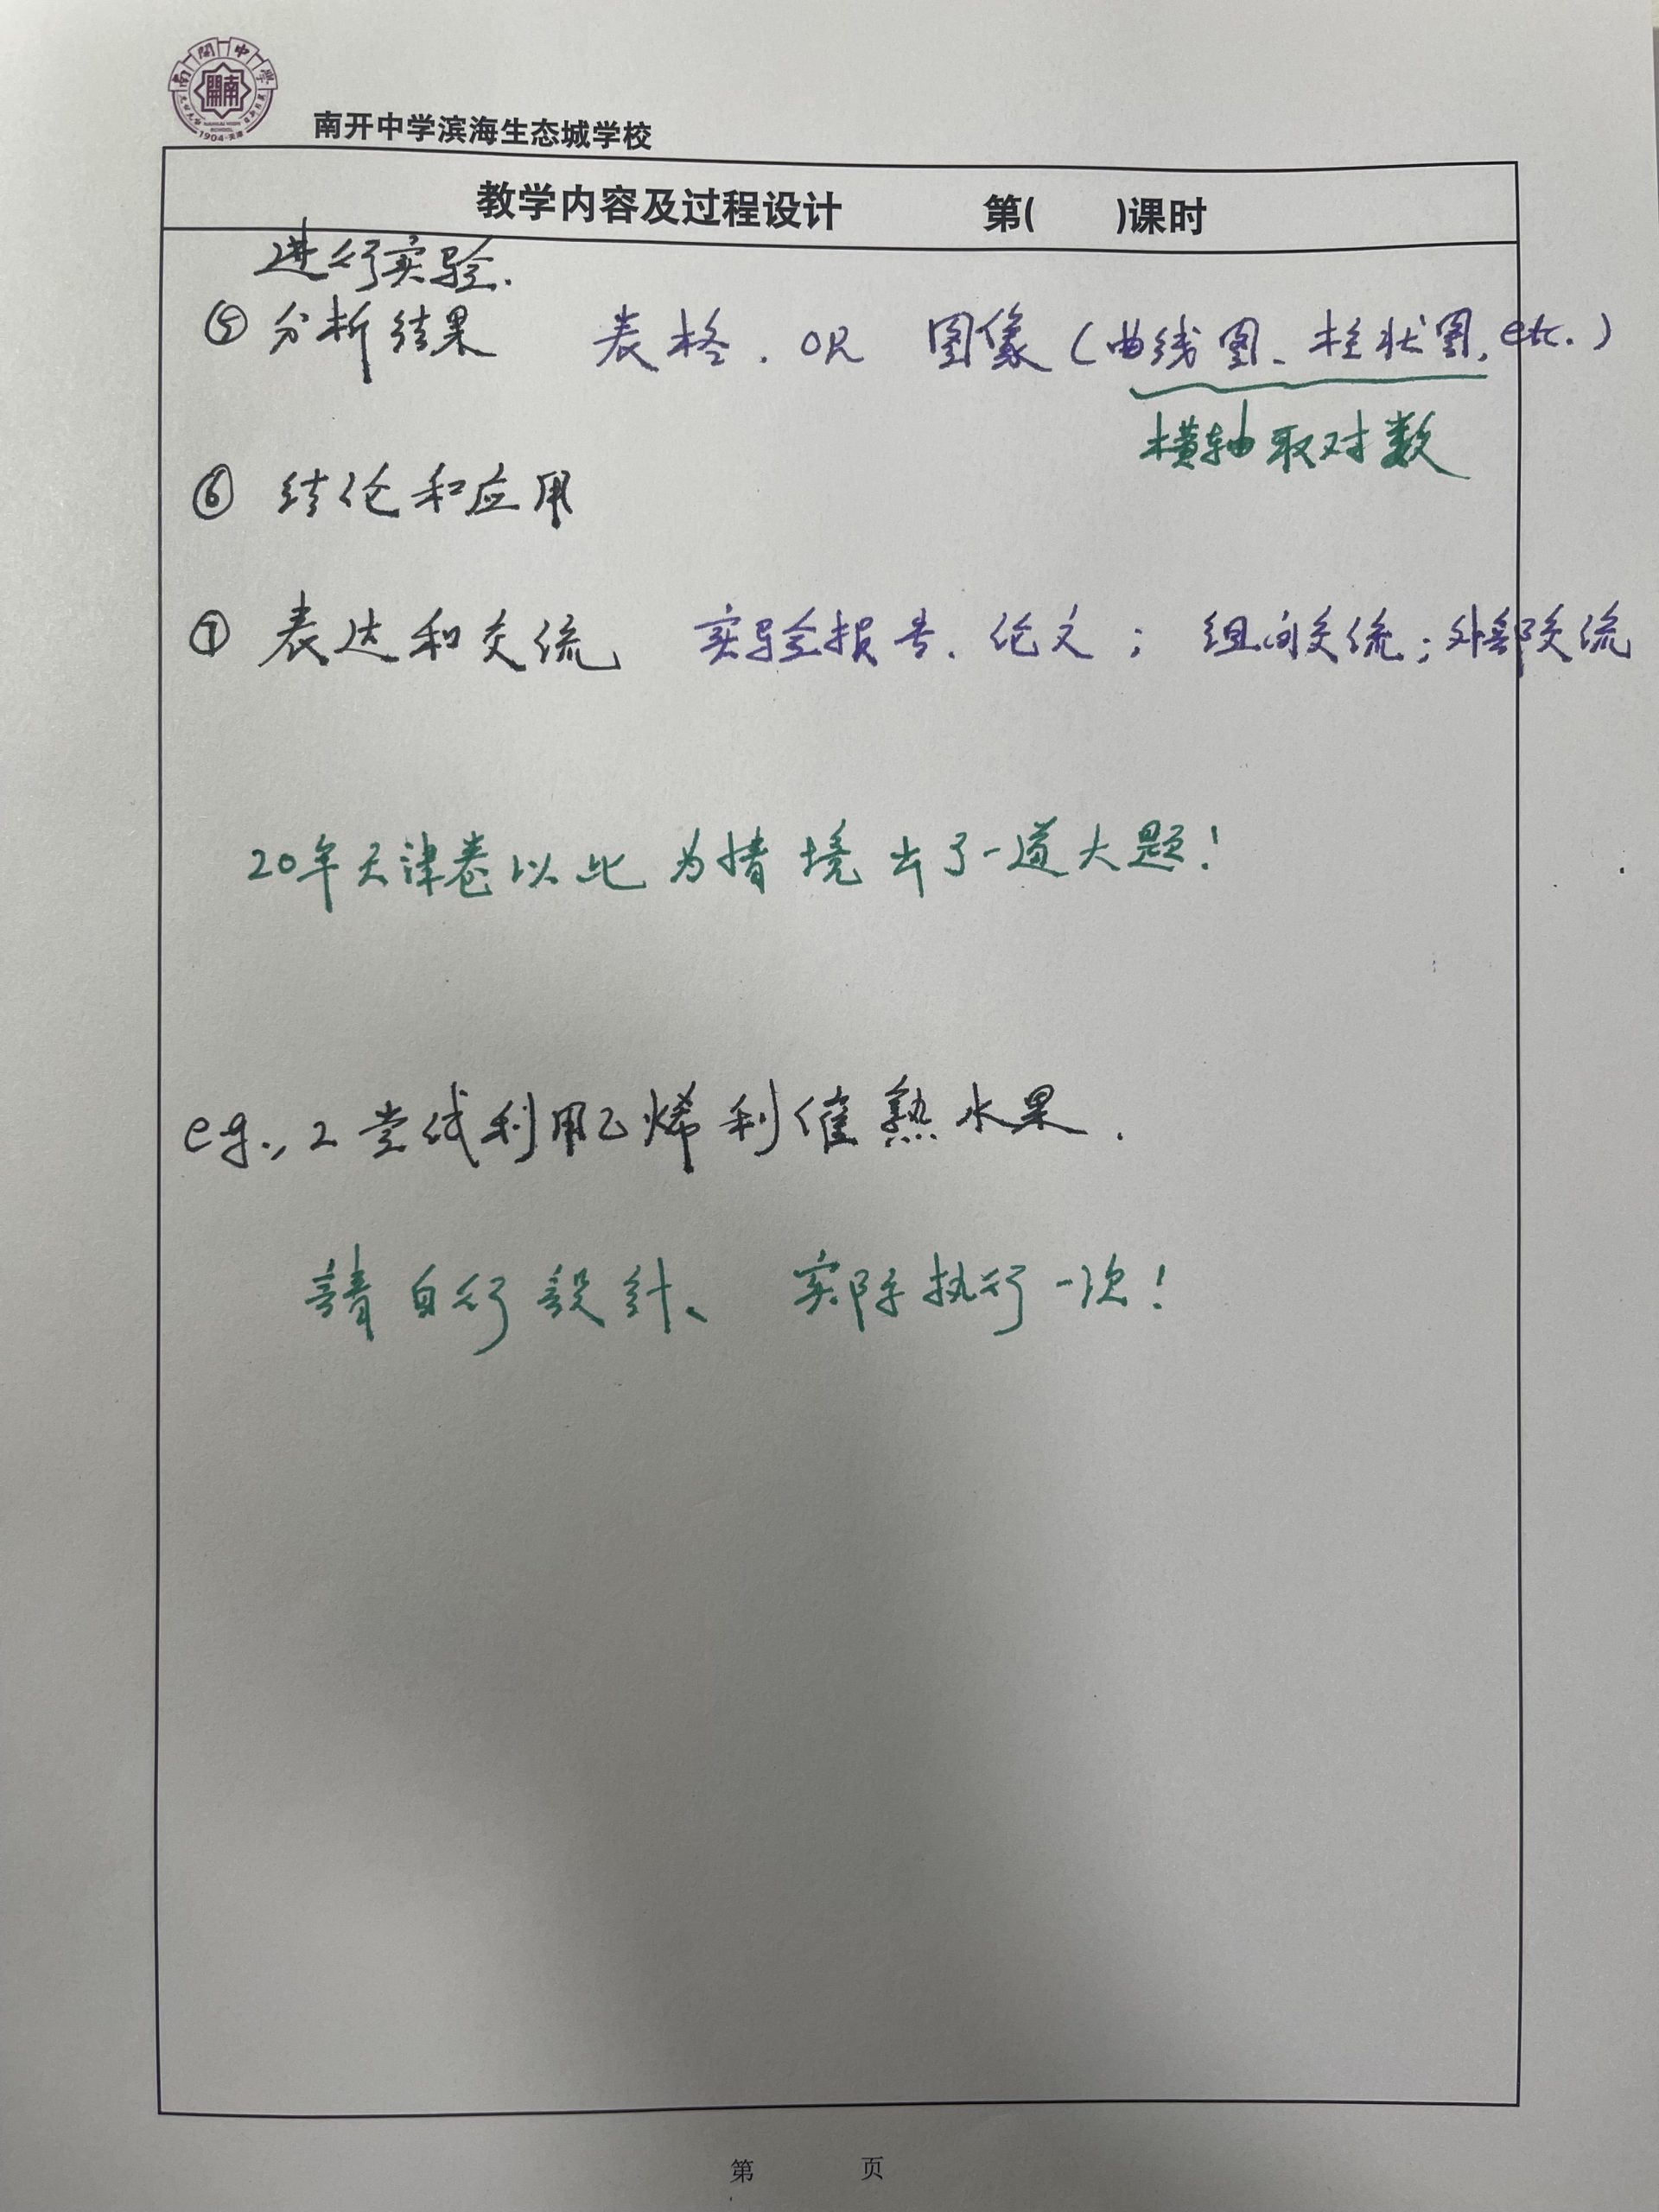 南開中学
1904·天津
南开中学滨海生态城学校
教学内容及过程设计 第( )课时
进行实验.
⑤ 分析结果 表格、OR 图像(曲线图、柱状图, etc.)
横轴取对数
⑥ 结论和应用
⑦ 表达和交流 实验报告、论文; 组间交流; 外部交流
20年天津卷以此为情境出了一道大题!
eg., 2 尝试利用乙烯利催熟水果.
請自行設計、实际执行一次!
第 页